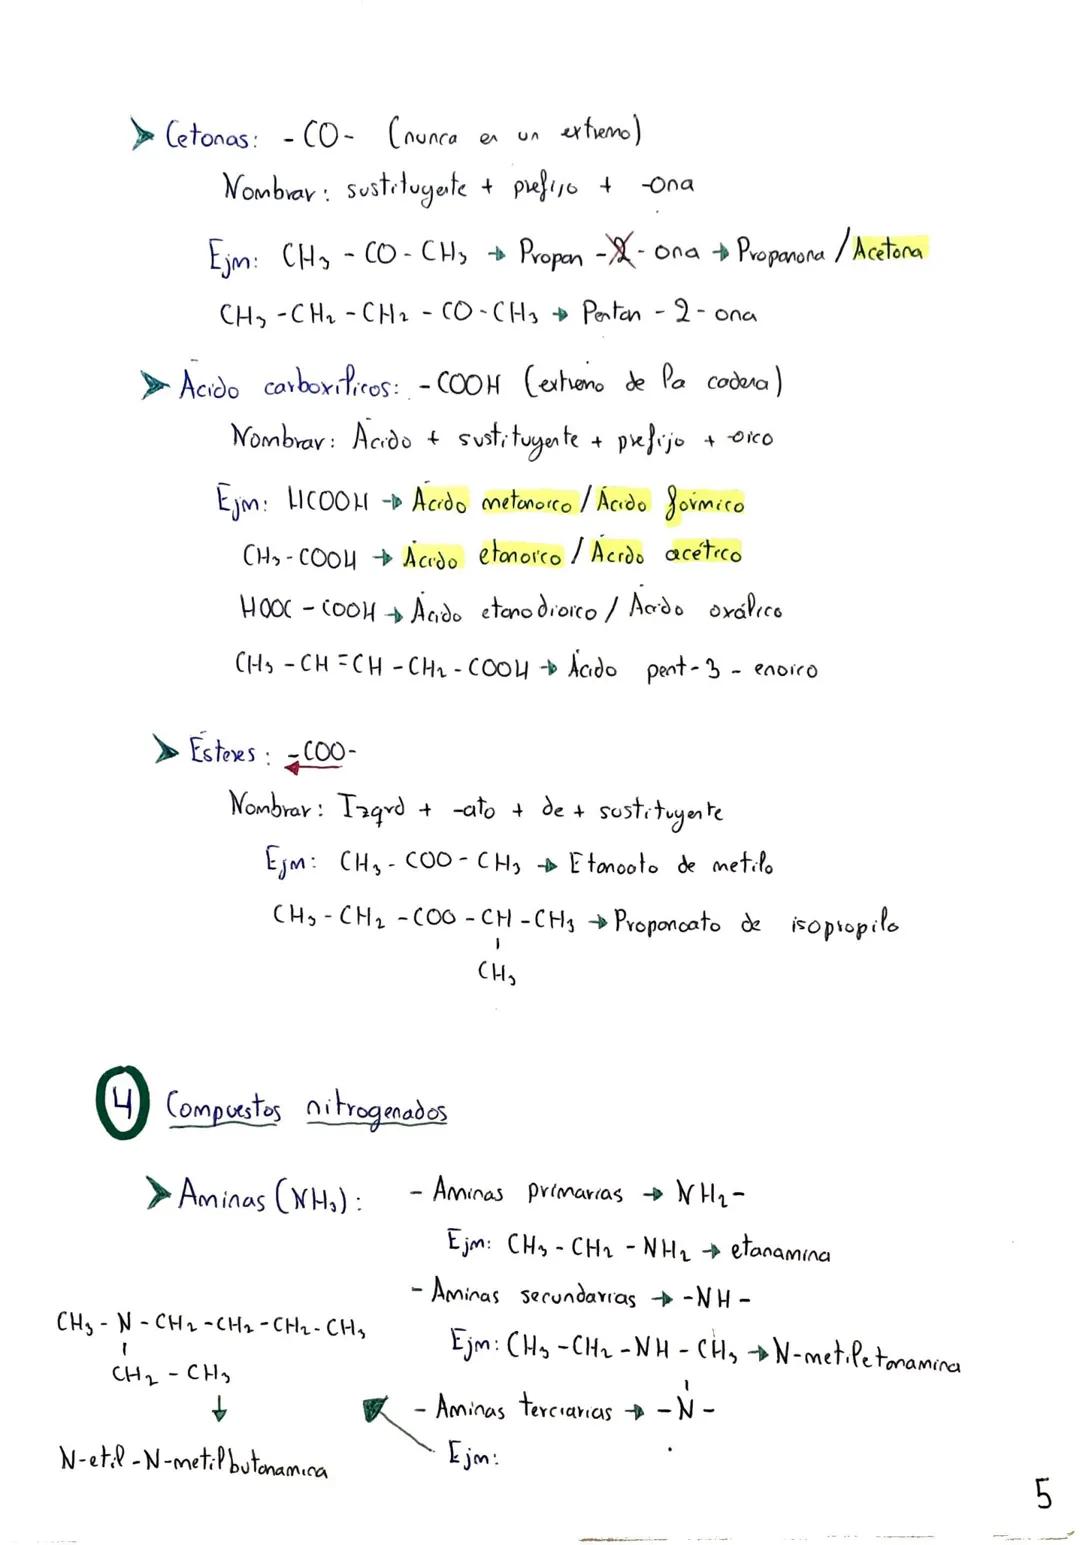 ➤ Cetonas: - CO - (nunca en un extremo)
Nombrar: sustituyente + prefijo + -ona
Ejm: CH3 - CO - CH3 → Propan -2- ona → Propanona / Acetona
CH3 - CH2 - CH2 - CO - CH3 → Pentan - 2 - ona
➤ Ácido carboxílicos: - COOH (extremo de la cadena)
Nombrar: Ácido + sustituyente + prefijo + -oico
Ejm: HCOOH → Ácido metanoico / Ácido fórmico
CH3 - COOH → Ácido etanoico / Ácido acético
HOOC - COOH → Ácido etanodioico / Ácido oxálico
CH3 - CH = CH - CH2 - COOH → Ácido pent - 3 - enoico
➤ Ésteres: - COO -
Nombrar: Izqrd + -ato + de + sustituyente
Ejm: CH3 - COO - CH3 → Etanoato de metilo
CH3 - CH2 - COO - CH - CH3 → Propanoato de isopropilo
CH3
4 Compuestos nitrogenados
➤ Aminas (NH3):
- Aminas primarias → NH2 -
Ejm: CH3 - CH2 - NH2 → etanamina
- Aminas secundarias → - NH -
Ejm: CH3 - CH2 - NH - CH3 → N-metiletanamina
- Aminas terciarias → - N -
Ejm:
CH3 - N - CH2 - CH2 - CH2 - CH3
CH2 - CH3
↓
N-etil - N-metilbutanamina
5